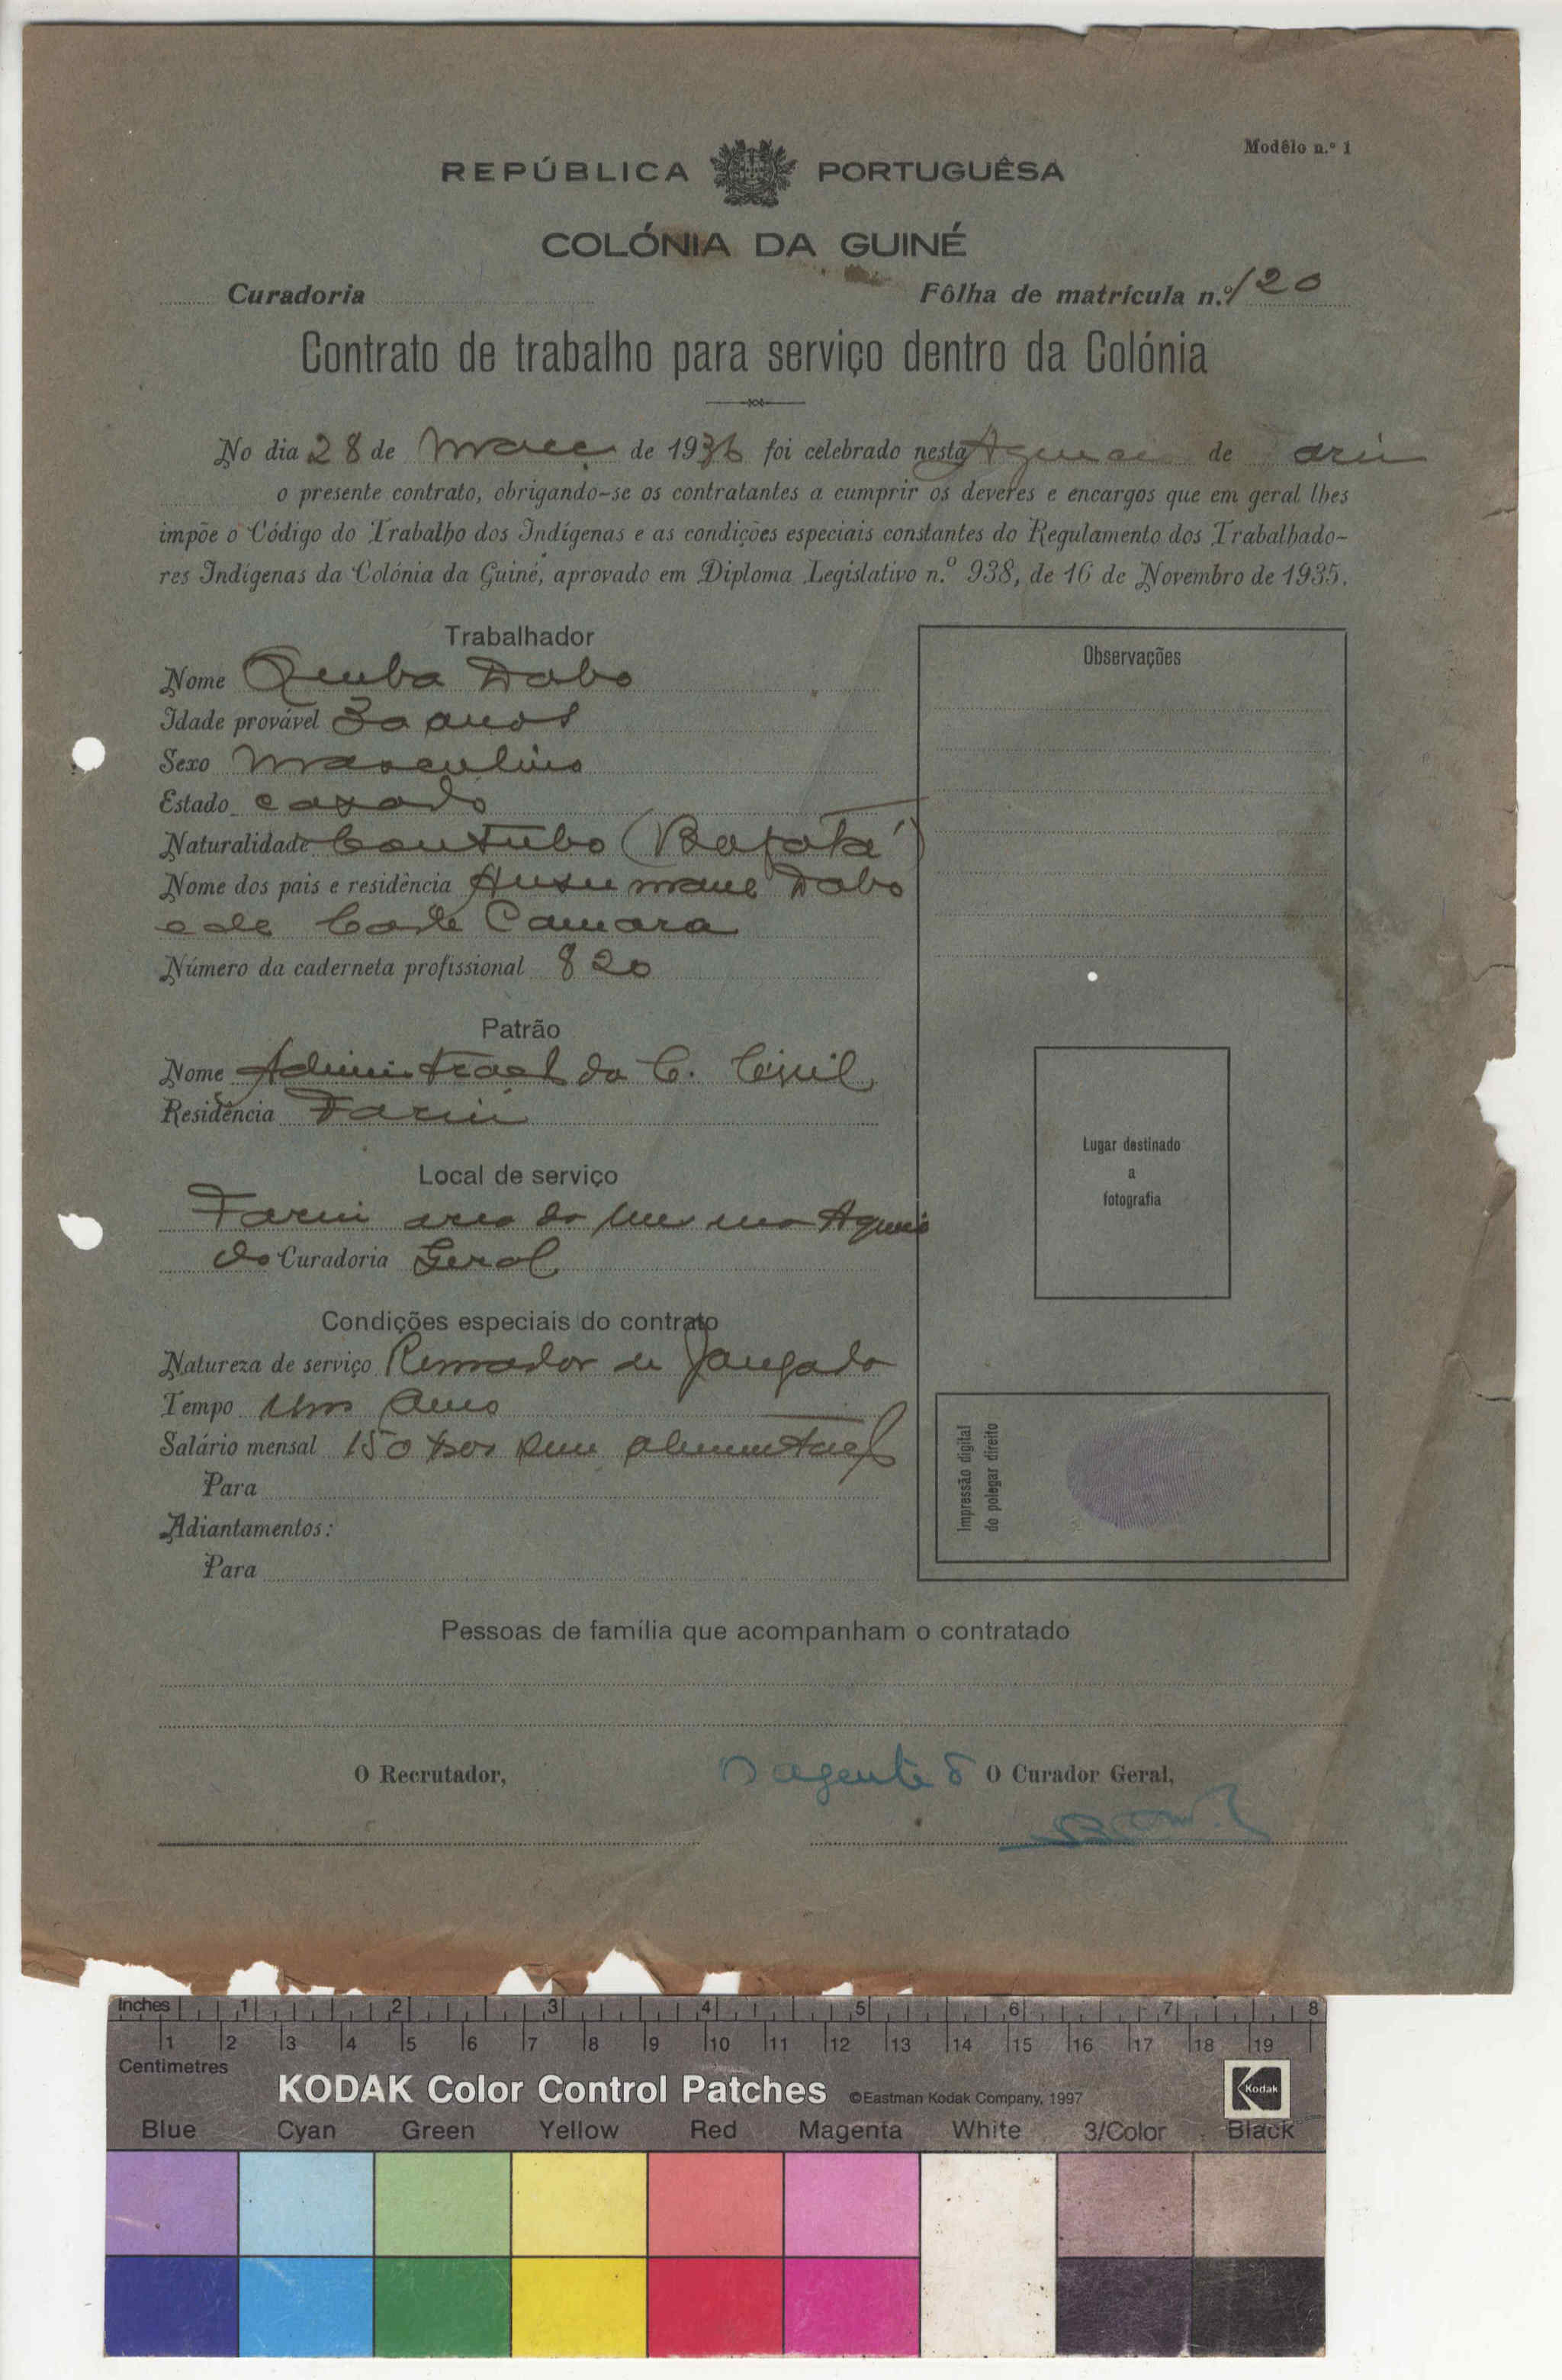 Modêlo n.º 1
REPÚBLICA PORTUGUÊSA
COLÓNIA DA GUINÉ
Curadoria Fôlha de matrícula n.º 120
Contrato de trabalho para serviço dentro da Colónia
No dia 28 de de 1936 foi celebrado nesta de
o presente contrato, obrigando-se os contratantes a cumprir os deveres e encargos que em geral lhes
impõe o Código do Trabalho dos Indígenas e as condições especiais constantes do Regulamento dos Trabalhado-
res Indígenas da Colónia da Guiné, aprovado em Diploma Legislativo n.º 938, de 16 de Novembro de 1935.
Trabalhador
Nome Dabo
Idade provável 30 anos
Sexo masculino
Estado casado
Naturalidade Contubo (Bafatá)
Nome dos pais e residência Dabo
e de Camara
Número da caderneta profissional 820
Patrão
Nome da C. Civil
Residência Farim
Local de serviço
Farim area da
da Curadoria Geral
Condições especiais do contrato
Natureza de serviço Remador de Jangada
Tempo Um ano
Salário mensal 150
Para
Adiantamentos:
Para
Observações
Lugar destinado
a
fotografia
Impressão digital
do polegar direito
Pessoas de família que acompanham o contratado
O Recrutador, O agente O Curador Geral,
Inches 1 2 3 4 5 6 7 8
1 2 3 4 5 6 7 8 9 10 11 12 13 14 15 16 17 18 19
Centimetres
KODAK Color Control Patches ©Eastman Kodak Company, 1997 Kodak
Blue Cyan Green Yellow Red Magenta White 3/Color Black